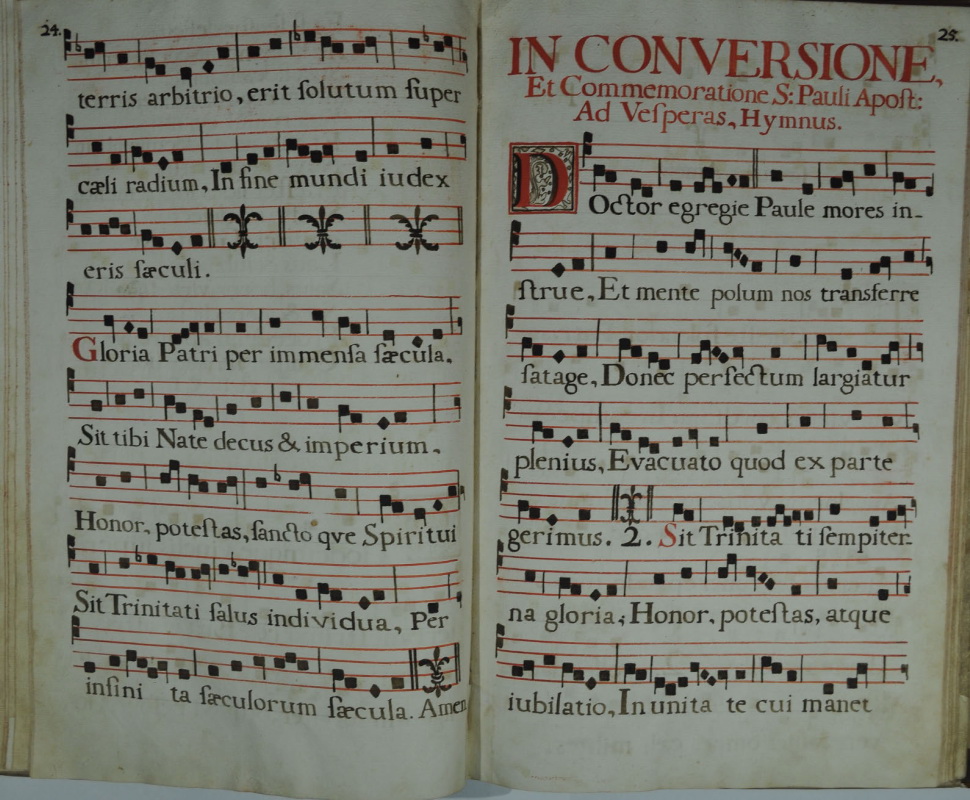 24.
terris arbitrio, erit ſolutum ſuper
cæli radium, In fine mundi iudex
eris ſæculi.
Gloria Patri per immenſa ſæcula.
Sit tibi Nate decus & imperium.
Honor, poteſtas, ſancto qve Spiritui
Sit Trinitati ſalus individua, Per
infini ta ſæculorum ſæcula. Amen
25.
IN CONVERSIONE,
Et Commemoratione S: Pauli Apoſt:
Ad Veſperas, Hymnus.
DOctor egregie Paule mores in-
ſtrue, Et mente polum nos transferre
ſatage, Donec perfectum largiatur
plenius, Evacuato quod ex parte
gerimus. 2. Sit Trinita ti ſempiter-
na gloria; Honor, poteſtas, atque
iubilatio, In unita te cui manet